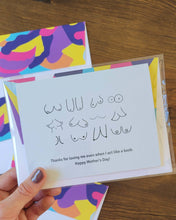 Thanks for loving me even when I act like a boob.
Happy Mother's Day!